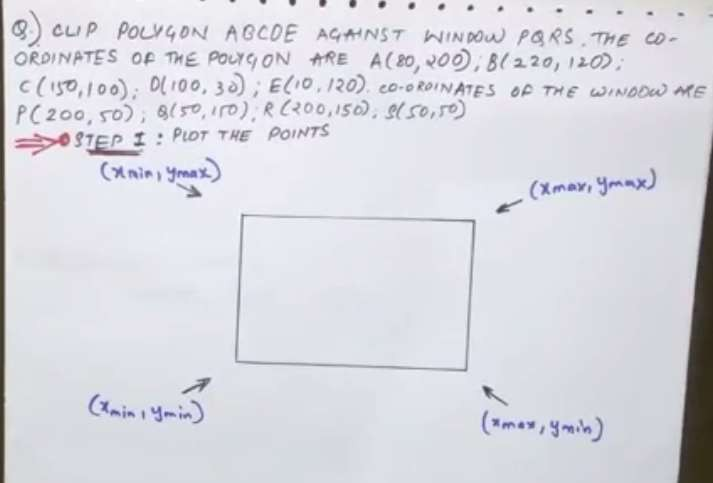 Q.) CLIP POLYGON ABCDE AGAINST WINDOW PQRS. THE CO-
ORDINATES OF THE POLYGON ARE A(80,200); B(220,120);
C(150,100); D(100,30); E(10,120). CO-ORDINATES OF THE WINDOW ARE
P(200,50); Q(50,150); R(200,150); S(50,50)
STEP I : PLOT THE POINTS
(xmin, ymax)
(xmax, ymax)
(xmin, ymin)
(xmax, ymin)